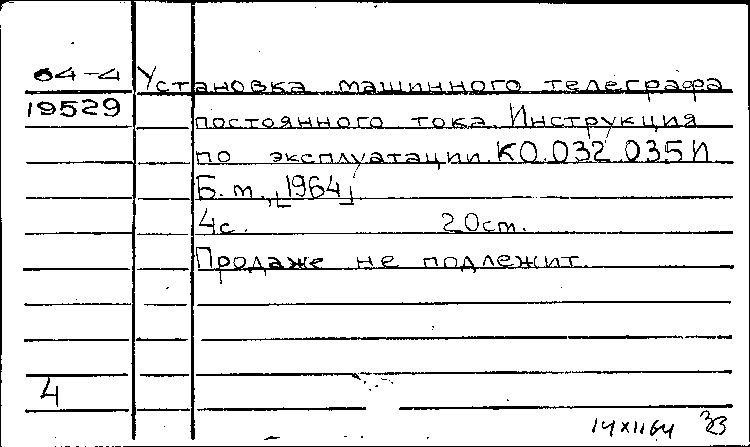 64-4 Установка машинного телеграфа
19529 постоянного тока. Инструкция
по эксплуатации. КО.032.035И
Б.т., [1964]
4с. 20см.
Продаже не подлежит.
4
14XII64 33